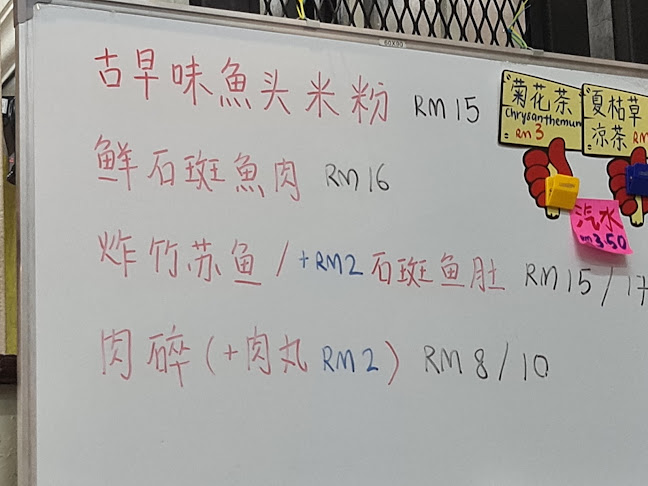 古早味魚头米粉 RM 15
鲜石斑魚肉 RM 16
炸竹苏鱼 / +RM2 石斑鱼肚 RM 15 / 17
肉碎 (+肉丸 RM 2) RM 8 / 10
菊花茶
Chrysanthemum
RM 3
夏枯草
凉茶 RM
汽水
RM 3.50
60X90